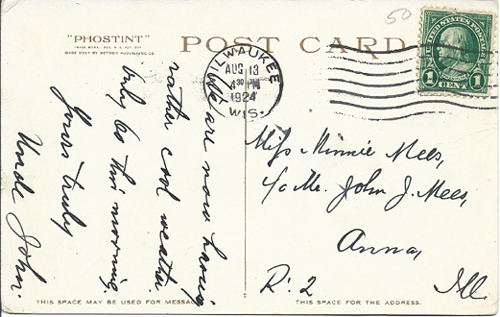 50
"PHOSTINT"
POST CARD
MADE ONLY BY DETROIT PUBLISHING CO.
MILWAUKEE
AUG 13
4 30 PM
1924
WIS.
UNITED STATES POSTAGE
1 1
CENT
We are now having
rather cool weather.
Only 60 this morning.
Yours truly
Uncle John.
Miss Minnie Mees,
c/o Mr. John J. Mees,
Anna,
R. 2 Ill.
THIS SPACE MAY BE USED FOR MESSAGE
THIS SPACE FOR THE ADDRESS.